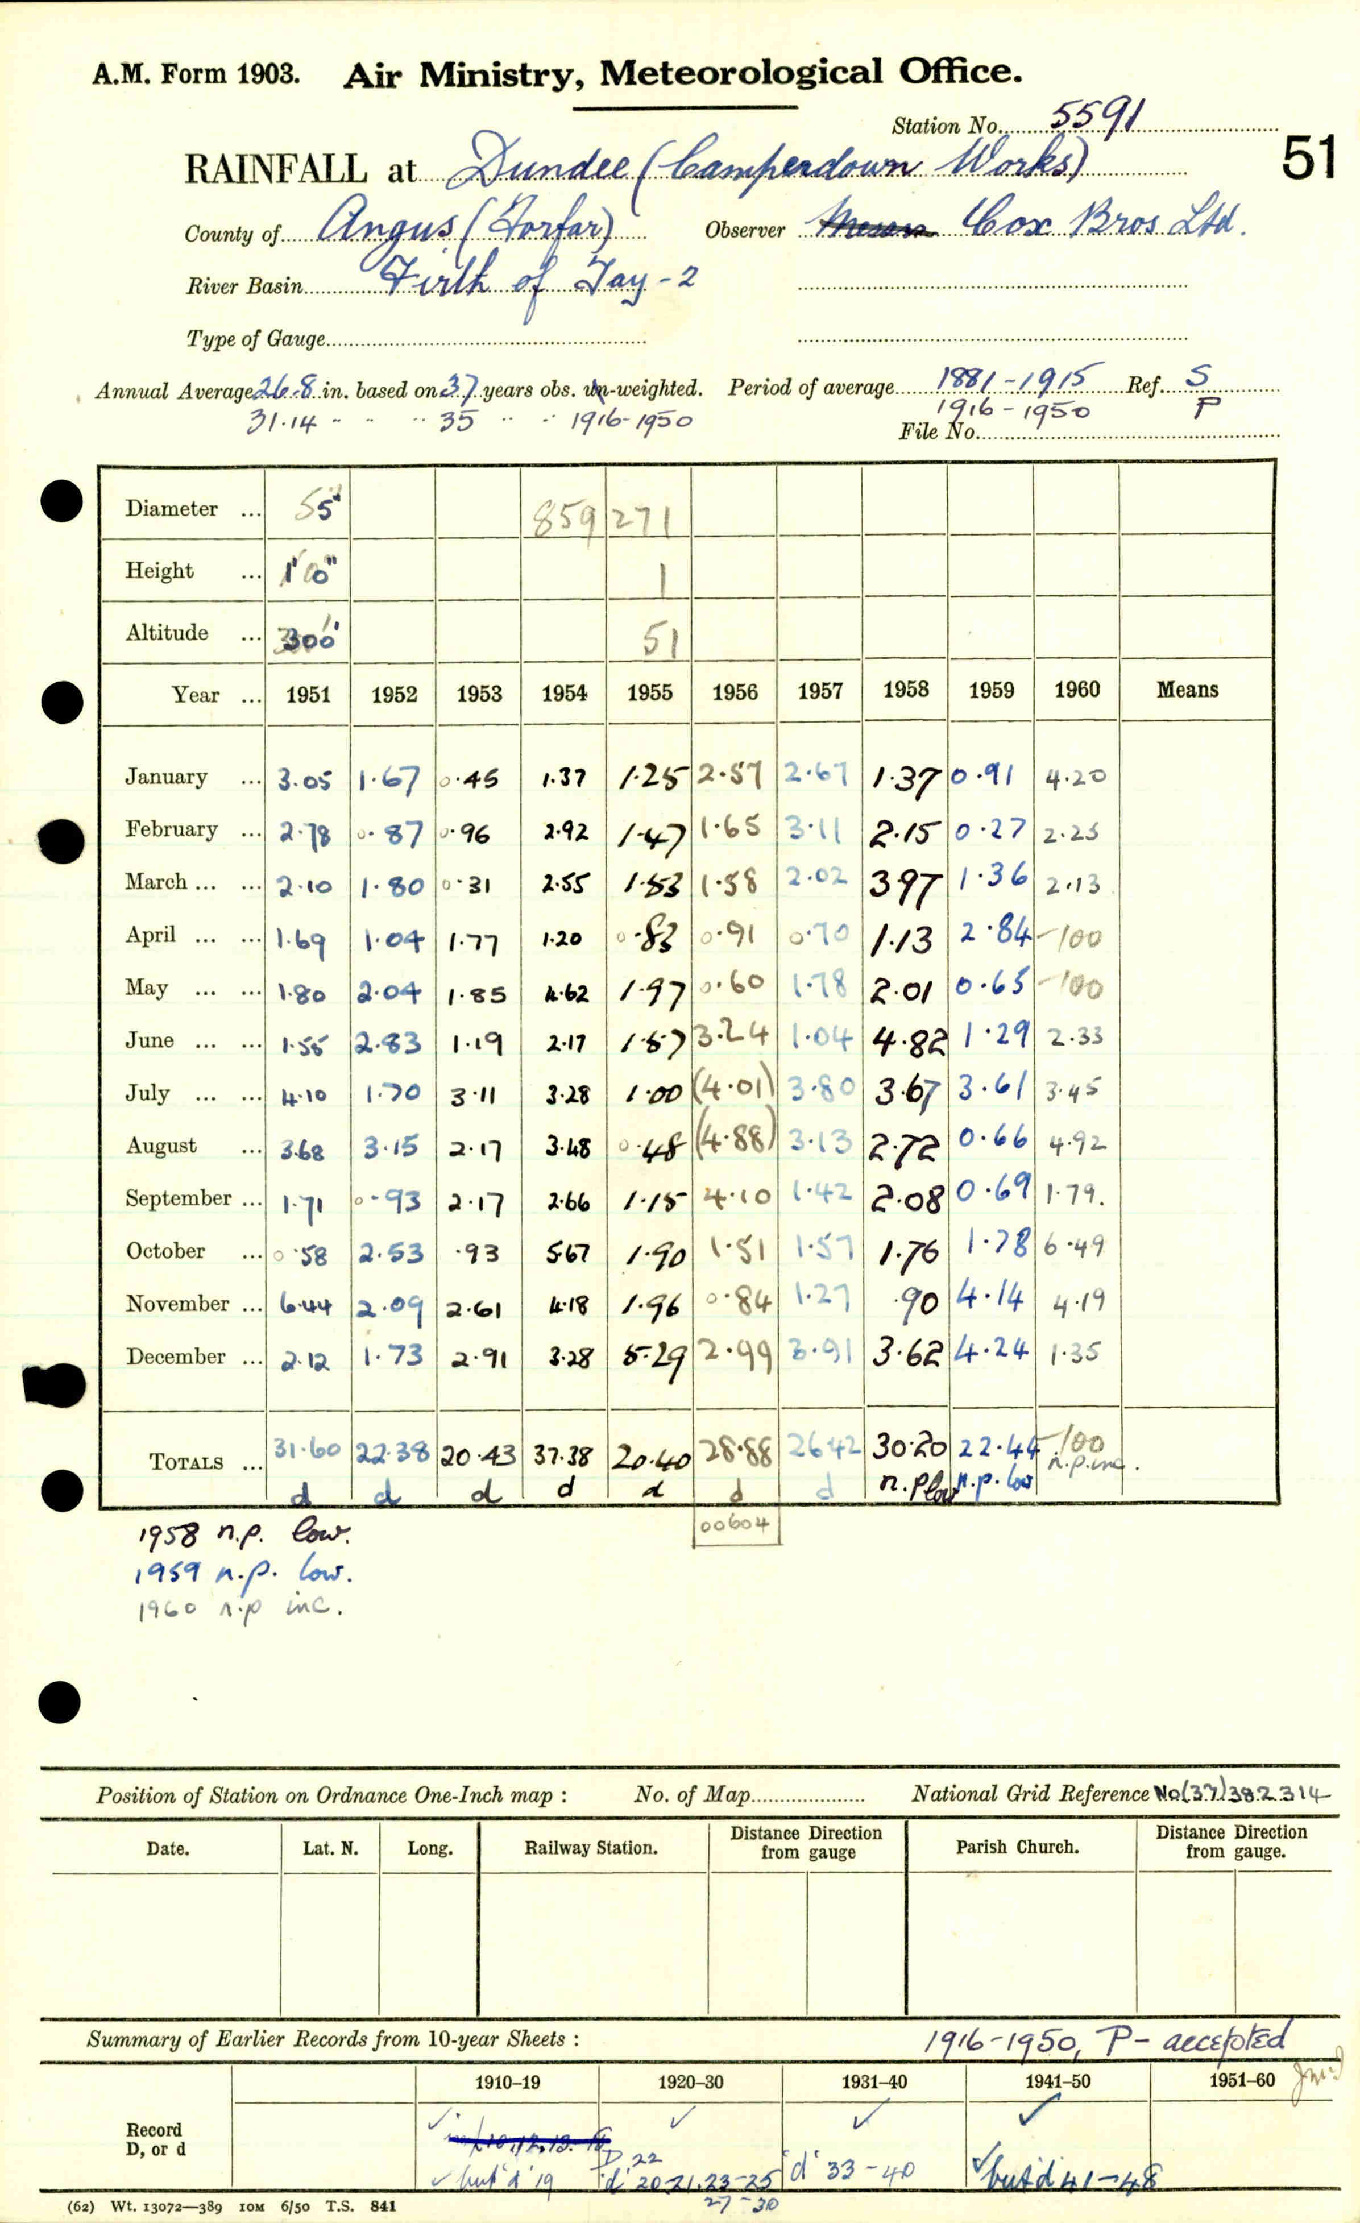 A.M. Form 1903. Air Ministry, Meteorological Office.
Station No. 5591
51
RAINFALL at Dundee (Camperdown Works)
County of Angus (Forfar) Observer Messrs Cox Bros Ltd.
River Basin Firth of Tay - 2
Type of Gauge
Annual Average 26.8 in. based on 37 years obs. un-weighted. Period of average 1881-1915 Ref. S
31.14 " " " 35 " " 1916-1950 1916-1950 P
File No.
Diameter ... 5" 859 271
Height ... 1'0" 1
Altitude ... 300' 51
Year ... 1951 1952 1953 1954 1955 1956 1957 1958 1959 1960 Means
January ... 3.05 1.67 0.45 1.37 1.25 2.57 2.67 1.37 0.91 4.20
February ... 2.78 0.87 0.96 2.92 1.47 1.65 3.11 2.15 0.27 2.25
March ... ... 2.10 1.80 0.31 2.55 1.53 1.58 2.02 3.97 1.36 2.13
April ... ... 1.69 1.04 1.77 1.20 0.83 0.91 0.70 1.13 2.84 -100
May ... ... 1.80 2.04 1.85 4.62 1.97 0.60 1.78 2.01 0.65 -100
June ... ... 1.55 2.83 1.19 2.17 1.57 3.24 1.04 4.82 1.29 2.33
July ... ... 4.10 1.70 3.11 3.28 1.00 (4.01) 3.80 3.67 3.61 3.45
August ... 3.68 3.15 2.17 3.48 0.48 (4.88) 3.13 2.72 0.66 4.92
September ... 1.71 0.93 2.17 2.66 1.15 4.10 1.42 2.08 0.69 1.79.
October ... 0.58 2.53 .93 5.67 1.90 1.51 1.57 1.76 1.78 6.49
November ... 6.44 2.09 2.61 4.18 1.96 0.84 1.27 .90 4.14 4.19
December ... 2.12 1.73 2.91 3.28 5.29 2.99 3.91 3.62 4.24 1.35
TOTALS ... 31.60 22.38 20.43 37.38 20.40 28.88 26.42 30.20 22.44 -100
d d d d d d d n.p low n.p. low n.p. inc.
00604
1958 n.p. low.
1959 n.p. low.
1960 n.p inc.
Position of Station on Ordnance One-Inch map : No. of Map National Grid Reference NO(37)382314
Date. Lat. N. Long. Railway Station. Distance from Direction gauge Parish Church. Distance from Direction gauge.
Summary of Earlier Records from 10-year Sheets : 1916-1950, P - accepted
1910–19 1920–30 1931–40 1941–50 1951–60
Record D, or d
✓ ✓ ✓ ✓
D 22
✓ but 'd' 19 'd' 20.21.23-25 'd' 33-40 ✓ but 'd' 41-48
27-30
(62) Wt. 13072—389 10M 6/50 T.S. 841